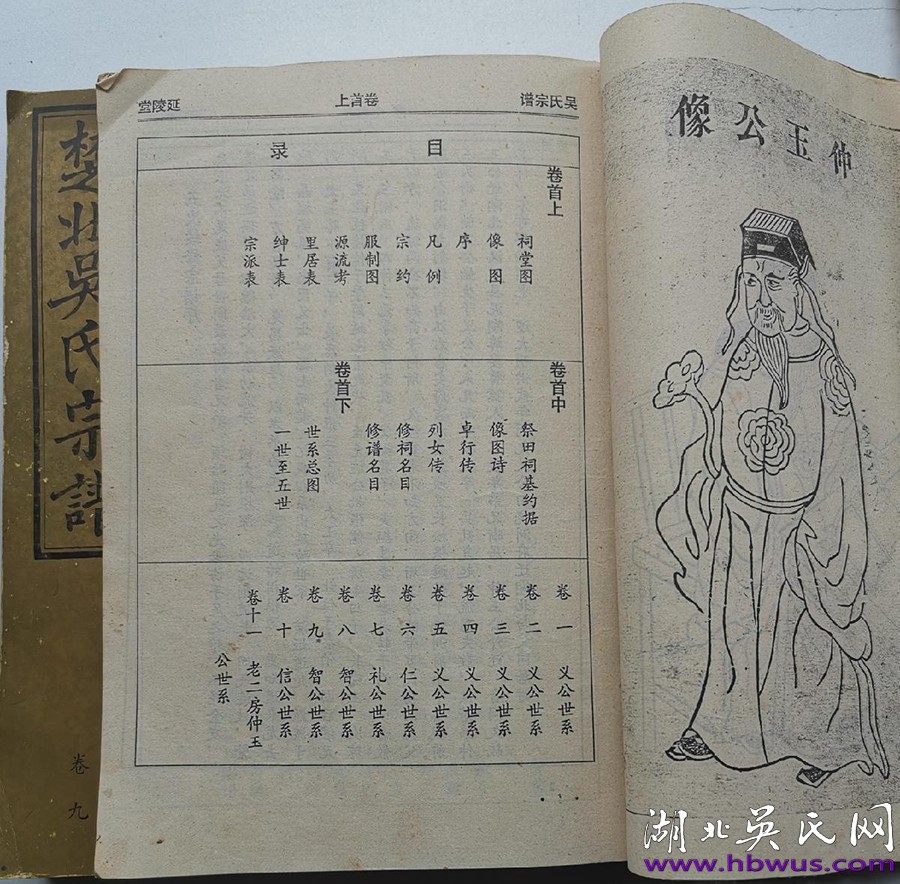 吴氏宗谱
卷首上
延陵堂
目录
卷首上
祠堂图
像图
序
凡例
宗约
服制图
源流考
里居表
绅士表
宗派表
卷首中
祭田祠基约据
像图诗
卓行传
列女传
修祠名目
修谱名目
卷首下
世系总图
一世至五世
卷一 义公世系
卷二 义公世系
卷三 义公世系
卷四 义公世系
卷五 义公世系
卷六 仁公世系
卷七 礼公世系
卷八 智公世系
卷九 智公世系
卷十 信公世系
卷十一 老二房仲玉
公世系
仲玉公像
楚北吳氏宗譜
卷九
湖北吴氏网
www.hbwus.com